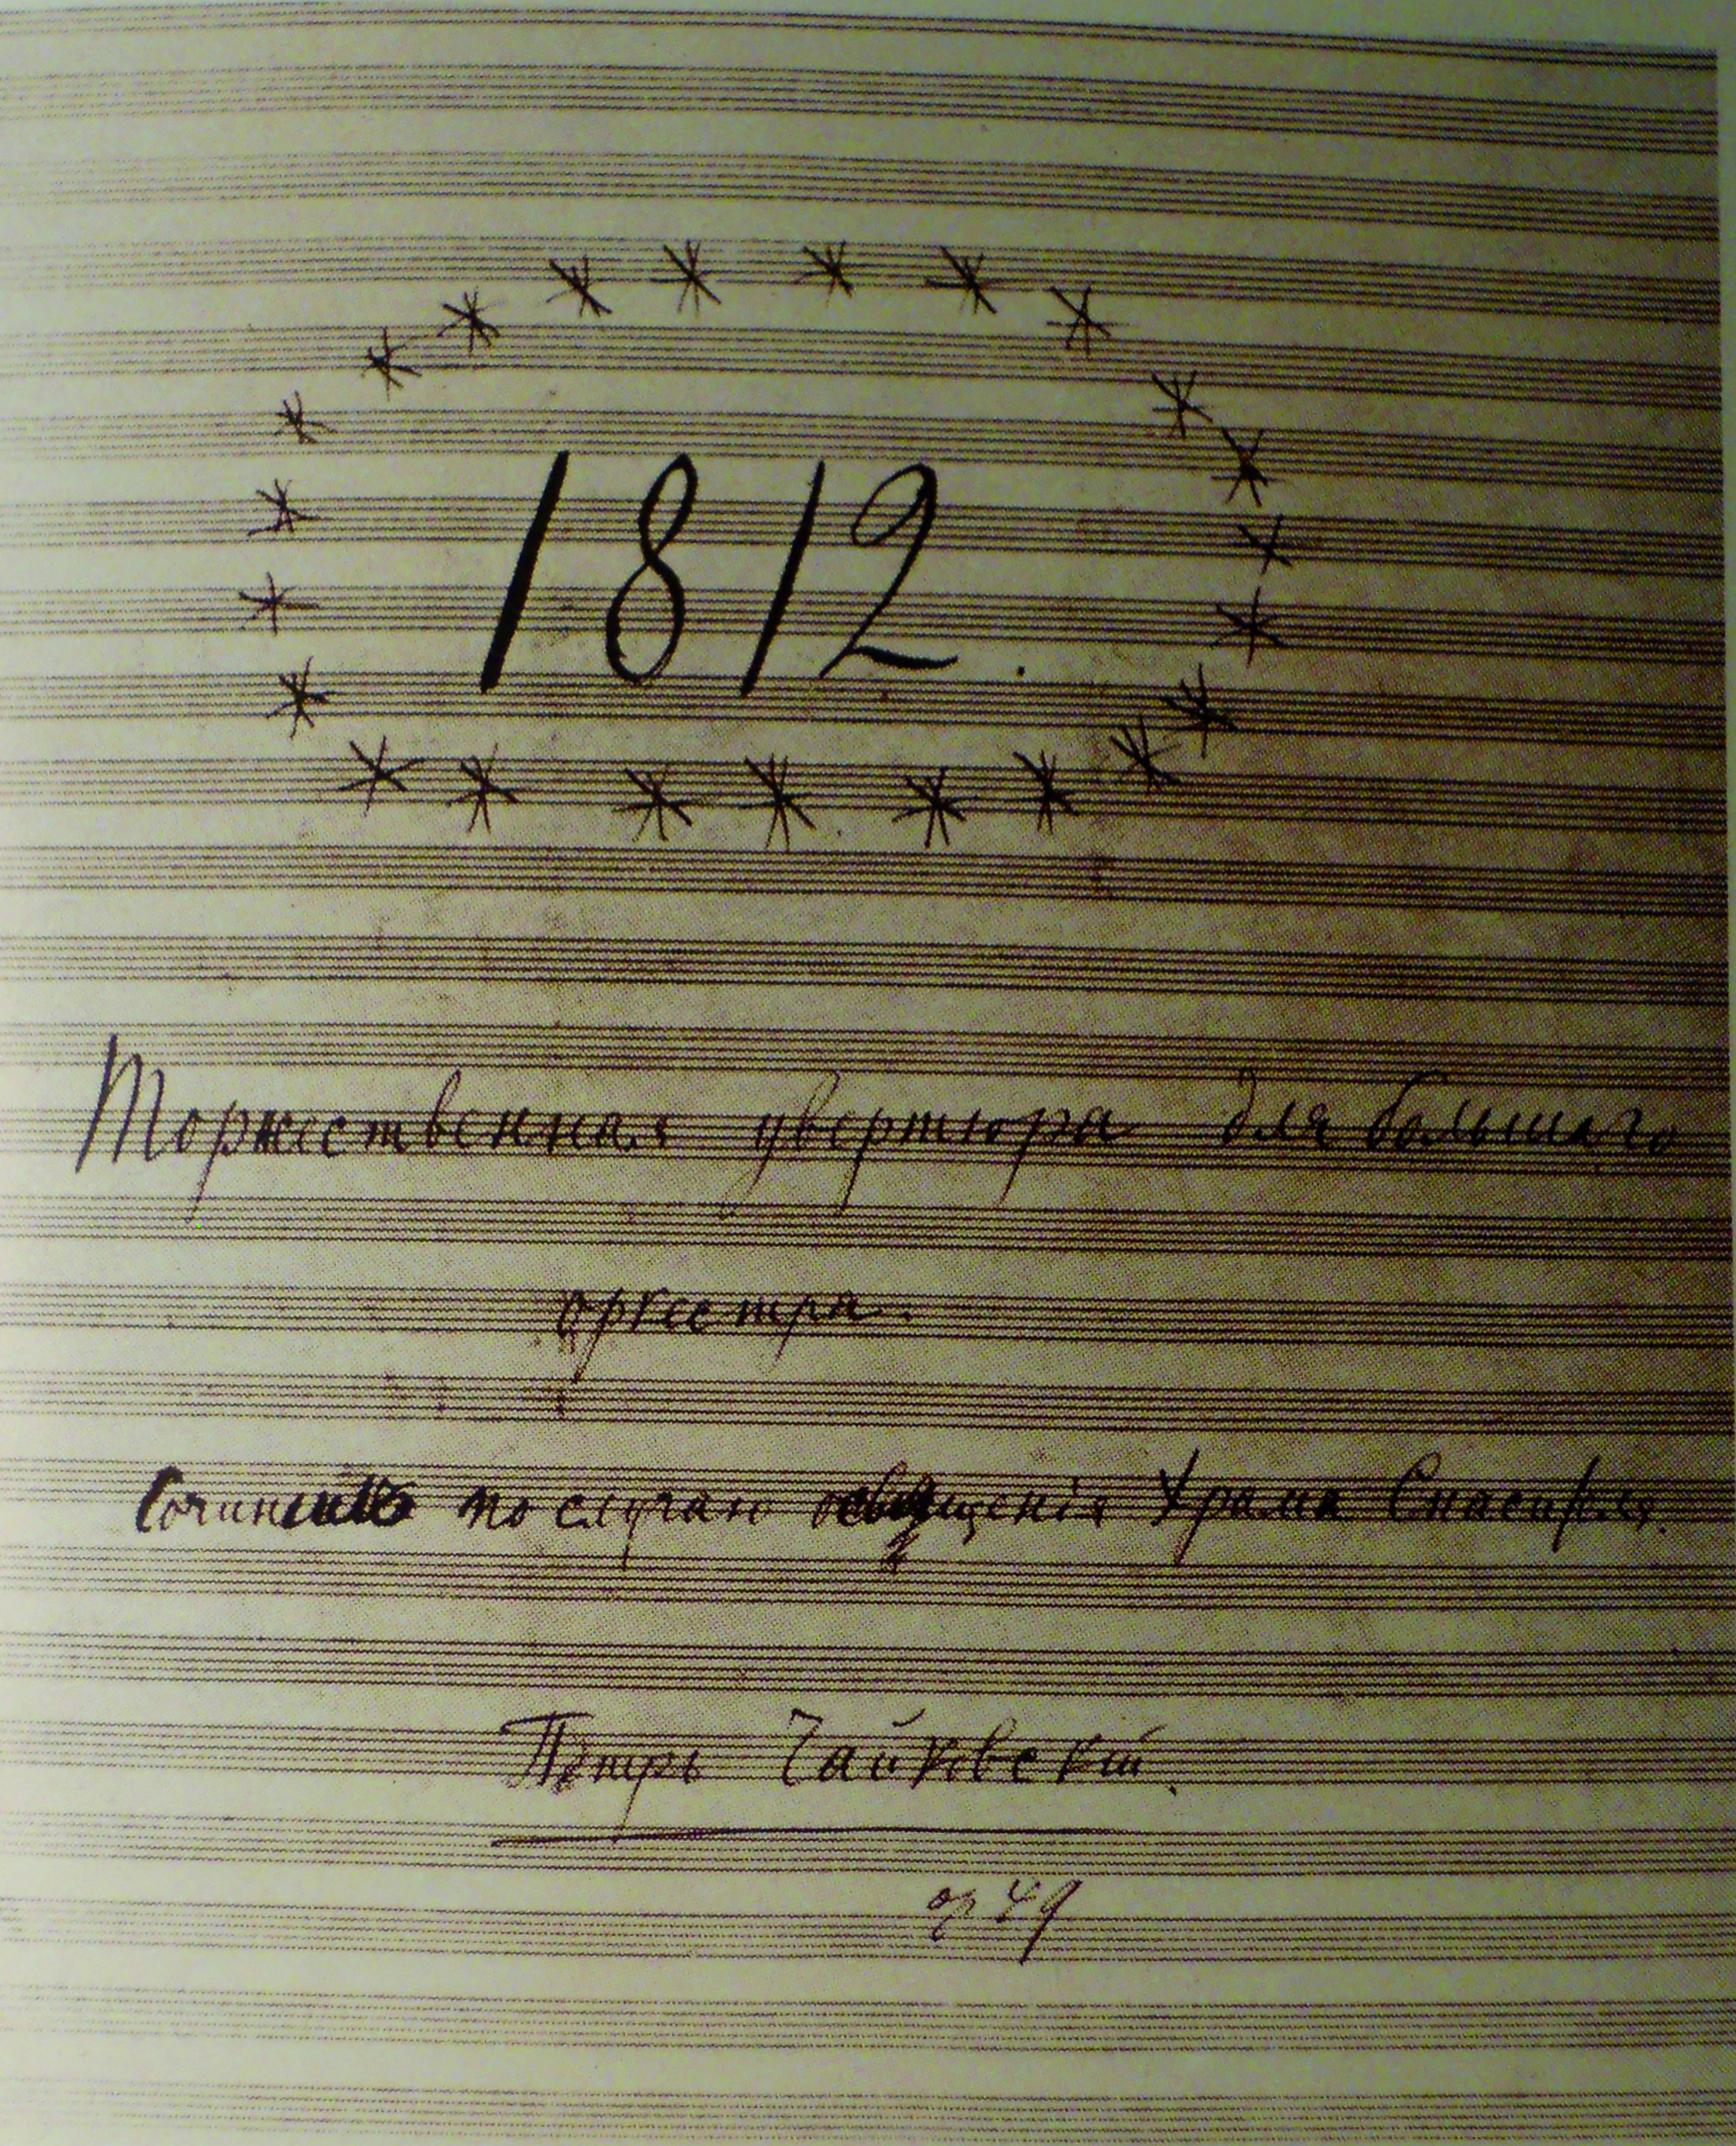 1812.
Торжественная увертюра для большаго
оркестра.
по случаю освященія Храма Спасителя.
Петръ Чайковскій.
op 49